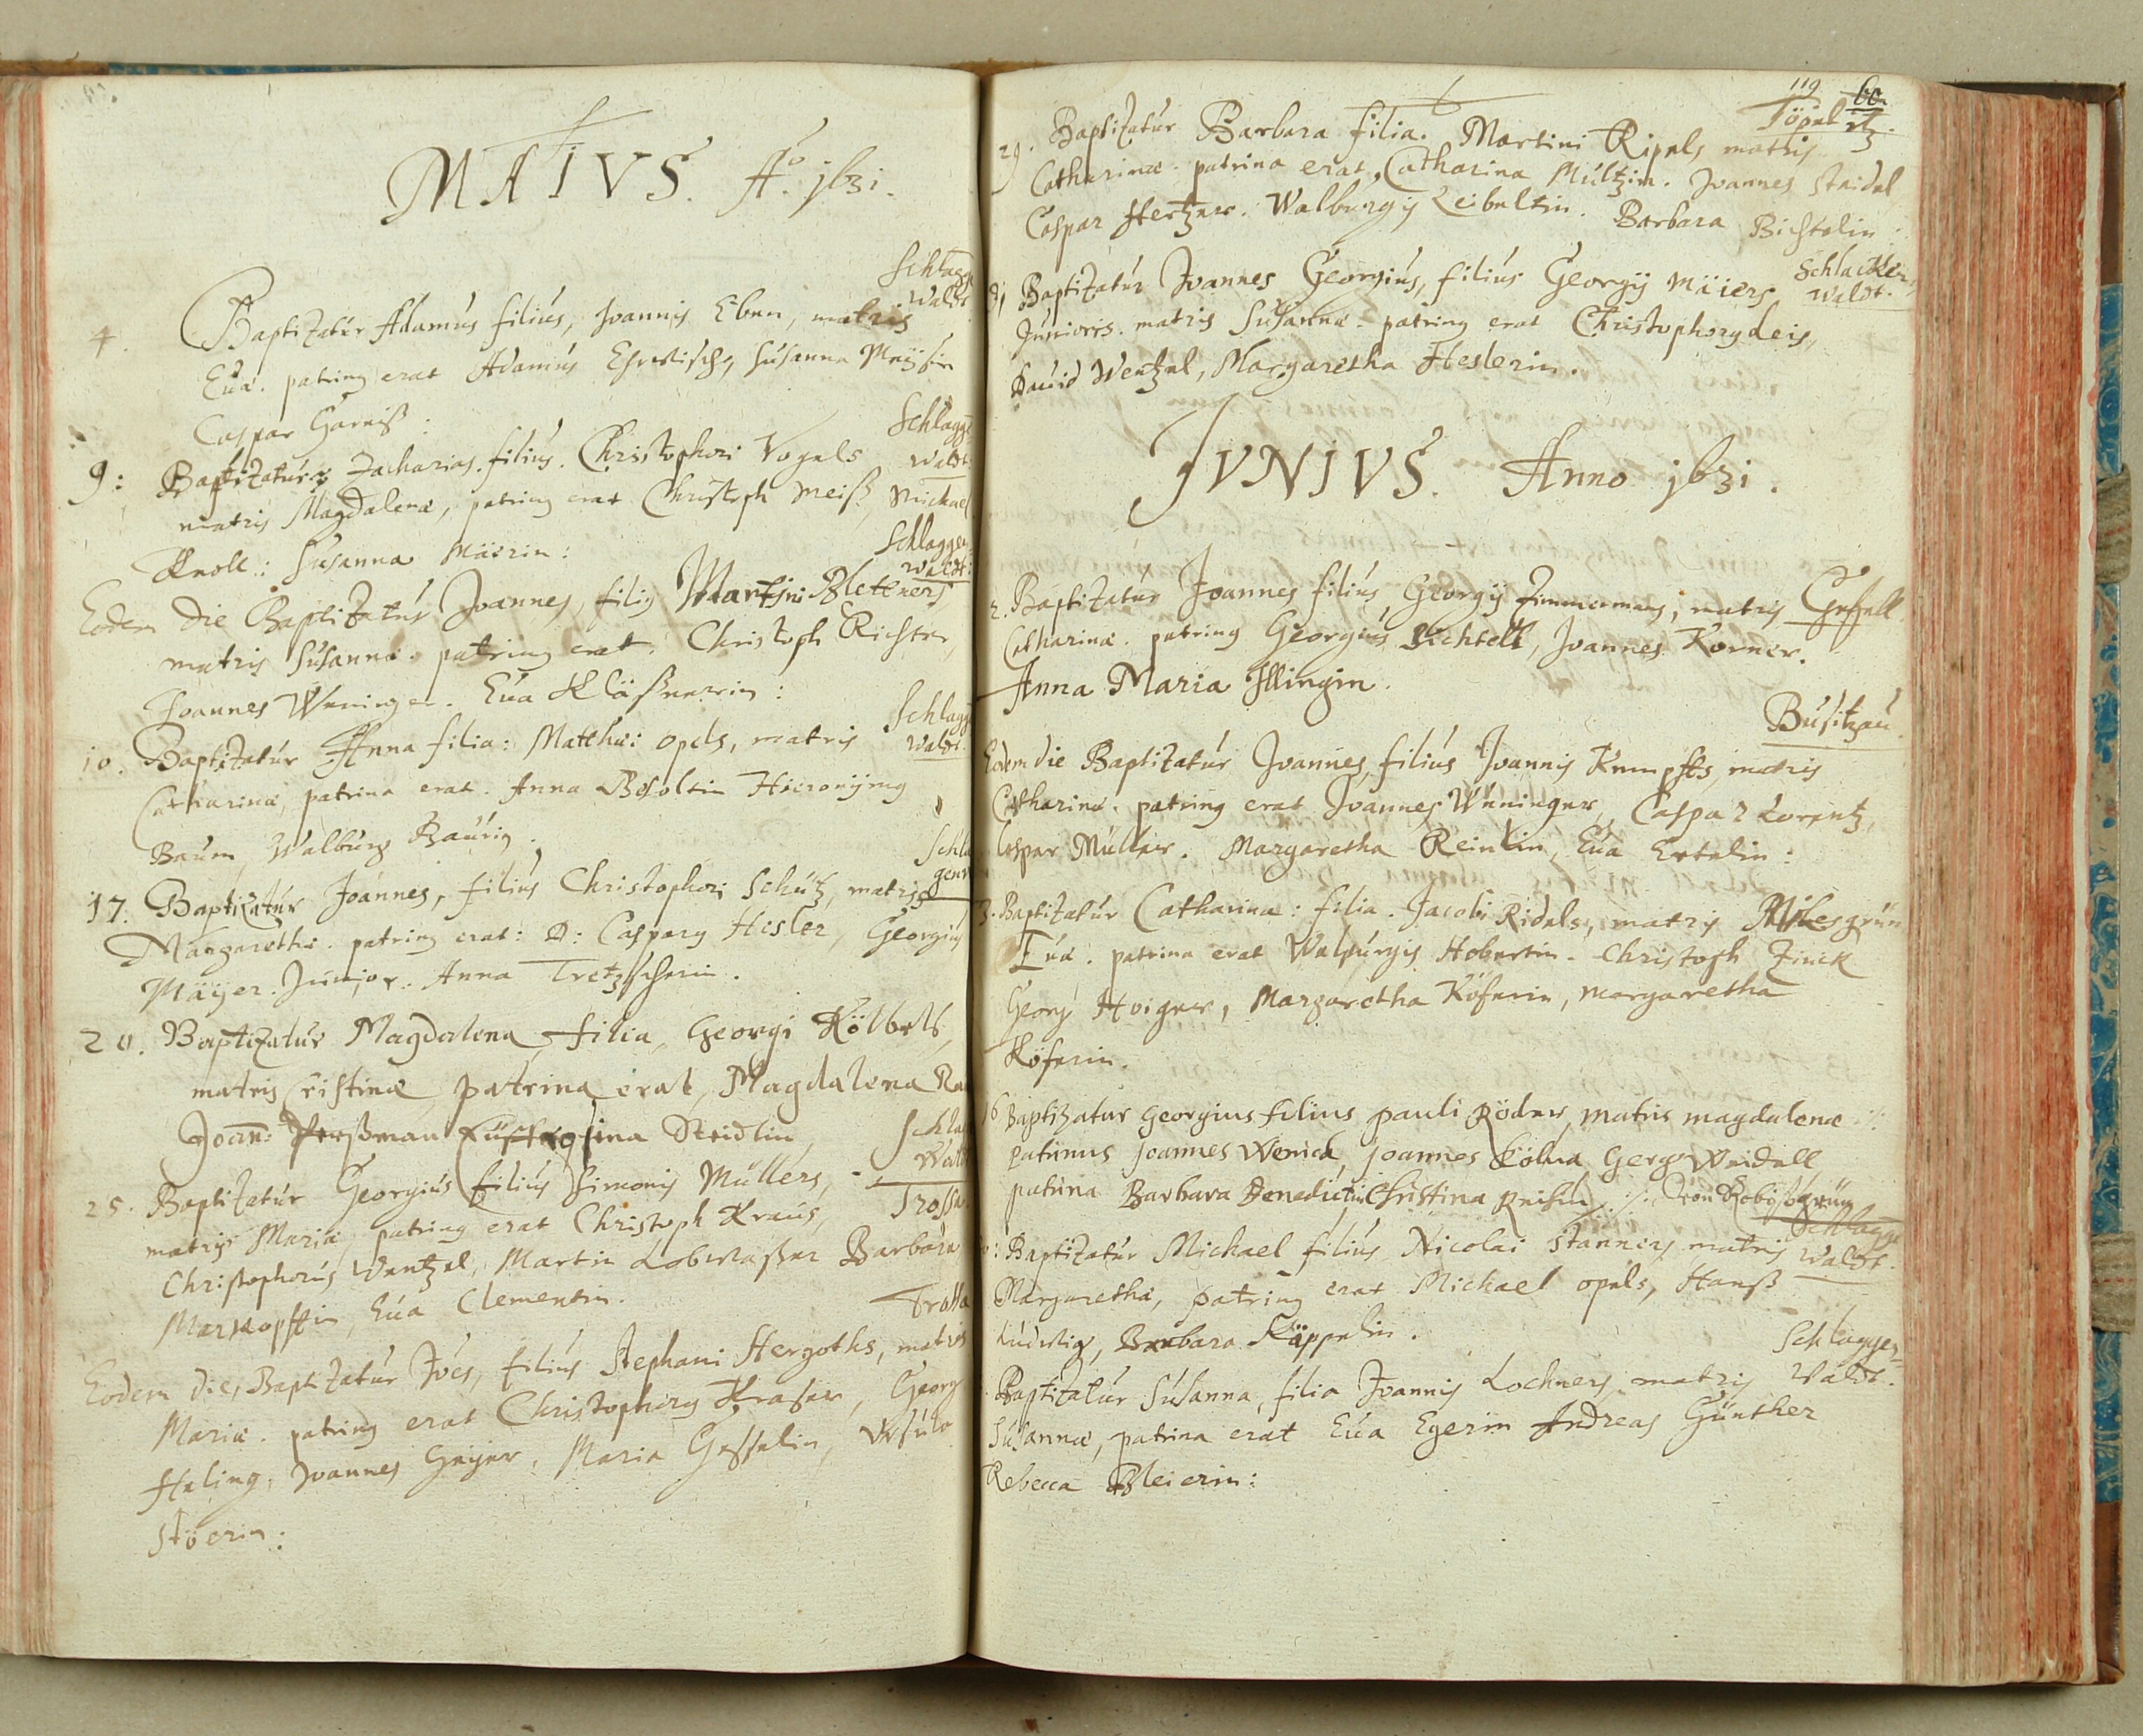 MAIVS. Aō. j631.
Schlagg
waldt
4. Baptizatúr Adamús filiús, Joannis Eben, matris
Eúæ. patring erat Adamús Susanna
Caspar Garniß :
Schlagg
waldt
9: Baptizatúr Zacharias. filiús. Christophori Vogels
matris Magdalenæ, patring erat Christoph Meiß, Michael
Knoll: Susanna Mäierin:
Schlaggen
waldt:
Eodem Die Baptizatús Joannes, filig Martini Pletners
matris Súsannæ. patring erat. Christoph Richter,
Joannes Weninger. Eúa Kläßnerin:
Schlagg
waldt.
10. Baptizatúr Anna filia: Matthæi Opels, matris
Catharinæ, patrina erat. Anna Besoltin Hieronÿmg
Baum, Walbúrg Baúrin.
Schla
genw
17. Baptizatúr Joannes, filiús Christophori Schútz, matris
Margarethæ. patring erat: D: Casparg Hesler, Georgiús
Mäÿer. Junior. Anna Tretzscherin.
20. Baptizatur Magdalena filia, Georgi Kölbels,
matris Cristinæ patrina erat, Magdalena
Joan: Steidlin
Schla
Wald
25. Baptizatúr Georgiús filiús Simonis Müllers,
Trossa
matris Mariæ, patring erat Christoph Kraús,
Christophorús Wentzel, Martin Lobwasser Barbara
Markopffin, Eúa Clementin.
Trossa
Eodem die, Baptizatúr Joes, filiús Stephani Hergoths, matris
Mariæ. patring erat Christophorg Kraser, Georg
Heling, Joannes Geÿer, Maria Gesselin, Vrsúla
Stöerin:
119 60
Töpel
29. Baptizatúr Barbara filia. Martini Ripels matris
Catharinæ. patrina erat, Catharina Múltzin. Joannes Steidel
Caspar Hertzer. Walburgis Leibeltin. Barbara Bichtelin:
Schlacken
waldt.
31 Baptizatúr Joannes Georgiús, filiús Georgÿ Mäiers
Júnioris. matris Súsannæ. patring erat Christophorg Leis,
Dauid Wentzel, Margaretha Heslerin.
JVNIVS. Anno j631.
2. Baptizatúr Joannes filiús Georgÿ Zimmermans, matris Gesell.
Catharinæ. patring Georgiús Bichtell, Joannes Korner.
Anna Maria Illingin.
Búsitzaú.
Eodem die Baptizatúr Joannes, filiús Joannis Kempffs, matris
Catharinæ. patring erat Joannes Weninger, Caspar Lorentz,
Caspar Múller. Margaretha Reinlin, Eúa Ertelin:
3. Baptizatúr Catharina: filia. Jacobi Ridels, matris Milesgrún
Eúæ. patrina erat Walpúrgis Hobertin. Christoph Zinck
Georg Hoiger, Margaretha Köferin, margaretha
Köferin.
16 Baptizatur Georgius filius pauli Röder, matris magdalenæ
patrinus Joannes Wenick, Joannes Gerg Weidell
patrina Barbara Benedictin Christina
Schlagge
waldt.
: Baptizatúr Michael filiús Nicolai Stanners matris
Margarethæ, patring erat Michael Opels, Hanß
Lúdwig, Barbara Käppelin.
Schlaggen
waldt.
Baptizatúr Súsanna, filia Joannis Lochners matris
Súsannæ, patrina erat Eúa Egerin Andreas Günther
Rebecca Pleierin: